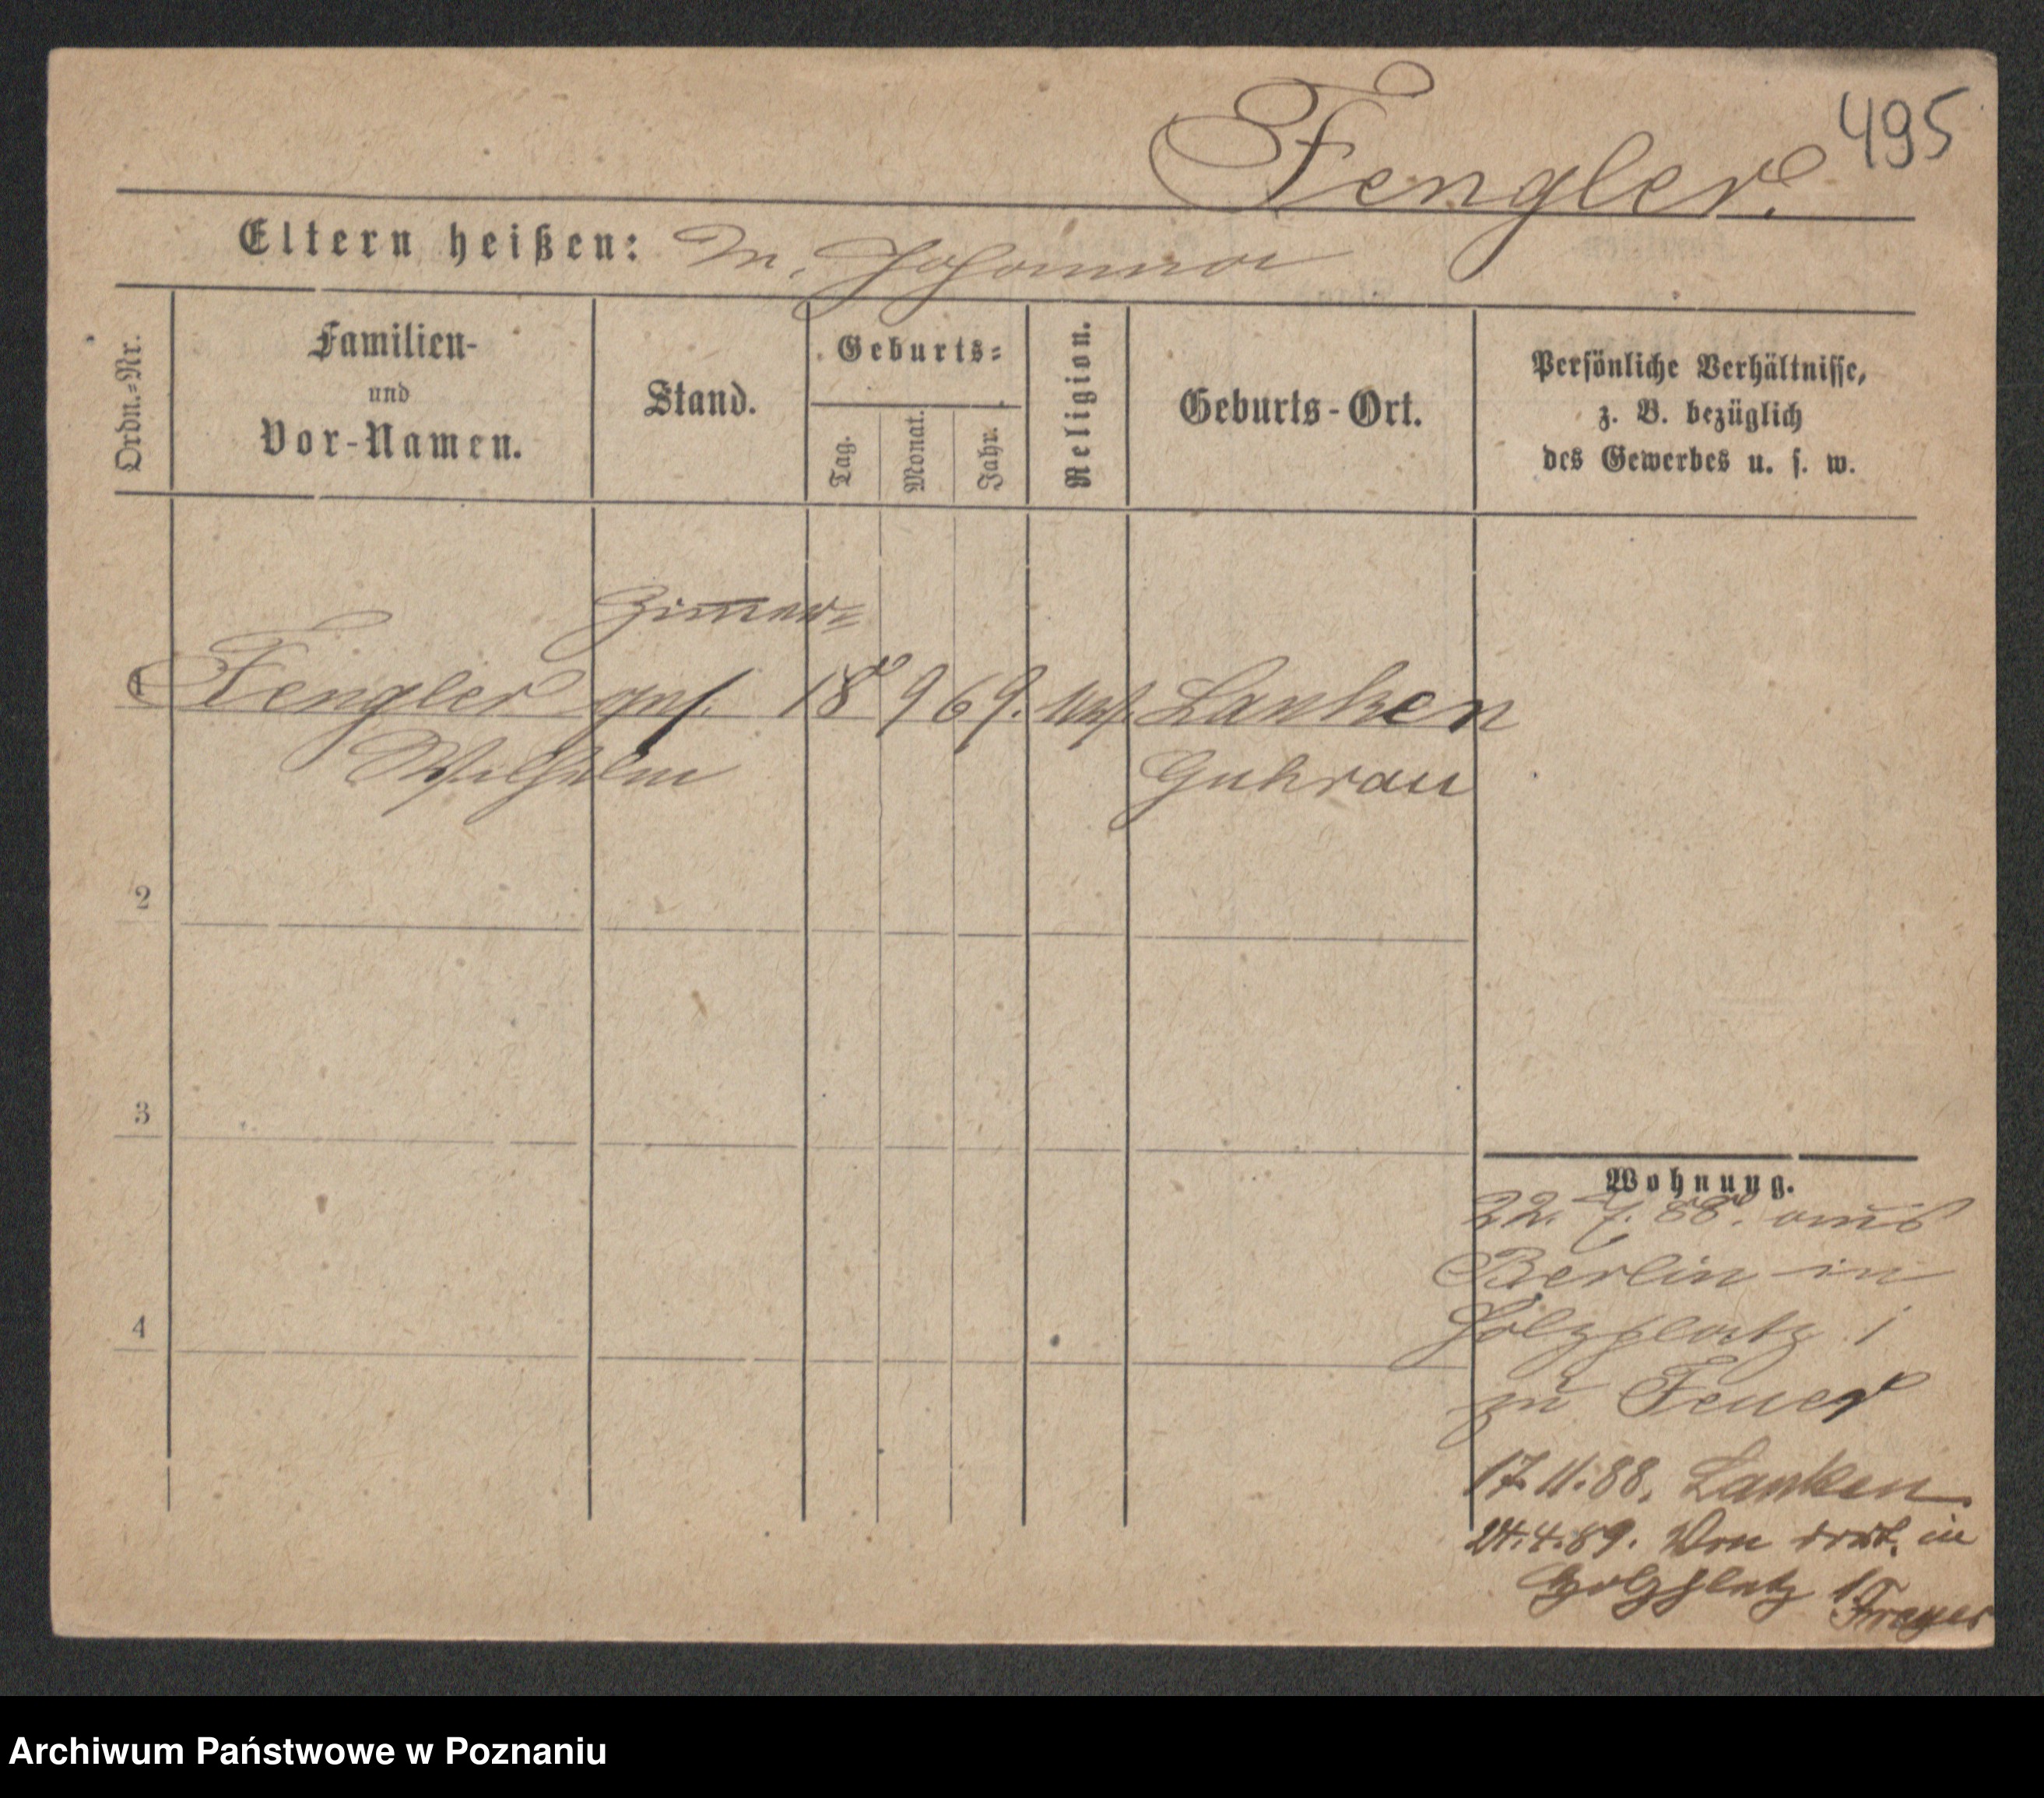 495
Fengler.
Eltern heißen: M. Johanna
Ordn.-Nr.
Familien-
und
Vor-Namen.
Stand.
Geburts-
Tag.
Monat.
Jahr.
Religion.
Geburts-Ort.
Persönliche Verhältnisse,
z. B. bezüglich
des Gewerbes u. s. w.
Zimer-
1 Fengler ges. 18 9 69. Lanken
Wilhelm Guhrau
2
3
4
Wohnung.
22. 7. 88. aus
Berlin in
Holzplatz 1
zu Feuer
17.11.88. Lanken
24.4.89. Von dort in
Holzplatz 1
Archiwum Państwowe w Poznaniu